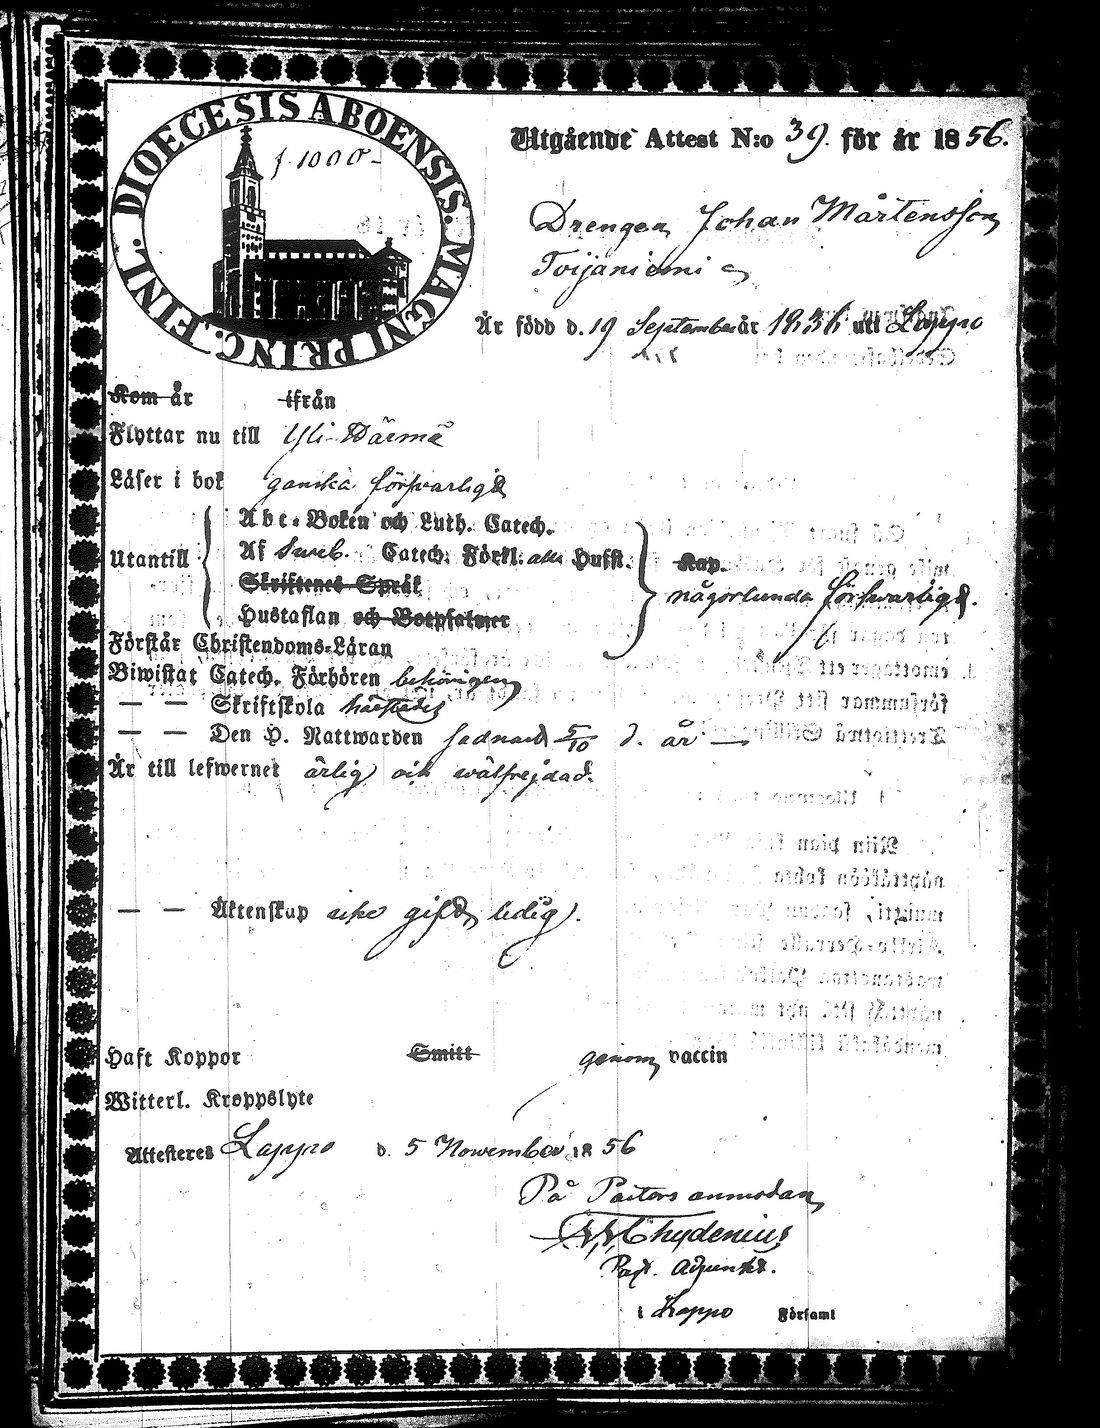 DIOECESIS ABOENSIS. MAGNI PRINC. FINL.
f 1000-
Utgående Attest N:o 39. för år 1856.
Drengen Johan Mårtensson
Toijaniemi
Är född d. 19 September år 1836 uti Lappo
Kom år ifrån
Flyttar nu till Yli Härmä
Läser i bok ganska försvarligt
Utantill
Abc-Boken och Luth. Catech.
Af Sveb. Catech. Förkl. alla Hufst.
Skriftenes Språk
Hustaflan och Botpsalmer
Kap.
någorlunda försvarligt.
Förstår Christendoms-Läran
Biwistat Catech. Förhören behörigen
— — Skriftskola härstädes
— — Den H. Nattwarden sednast 5/10 d. år —
Är till lefwernet ärlig och wälfrejdad.
— — Äktenskap icke gift, ledig.
Haft Koppor Smitt genom vaccin
Witterl. Kroppslyte
Attesteras Lappo d. 5 November 1856
På Pastors anmodan
Chydenius
Past. Adjunkt.
i Lappo Församl